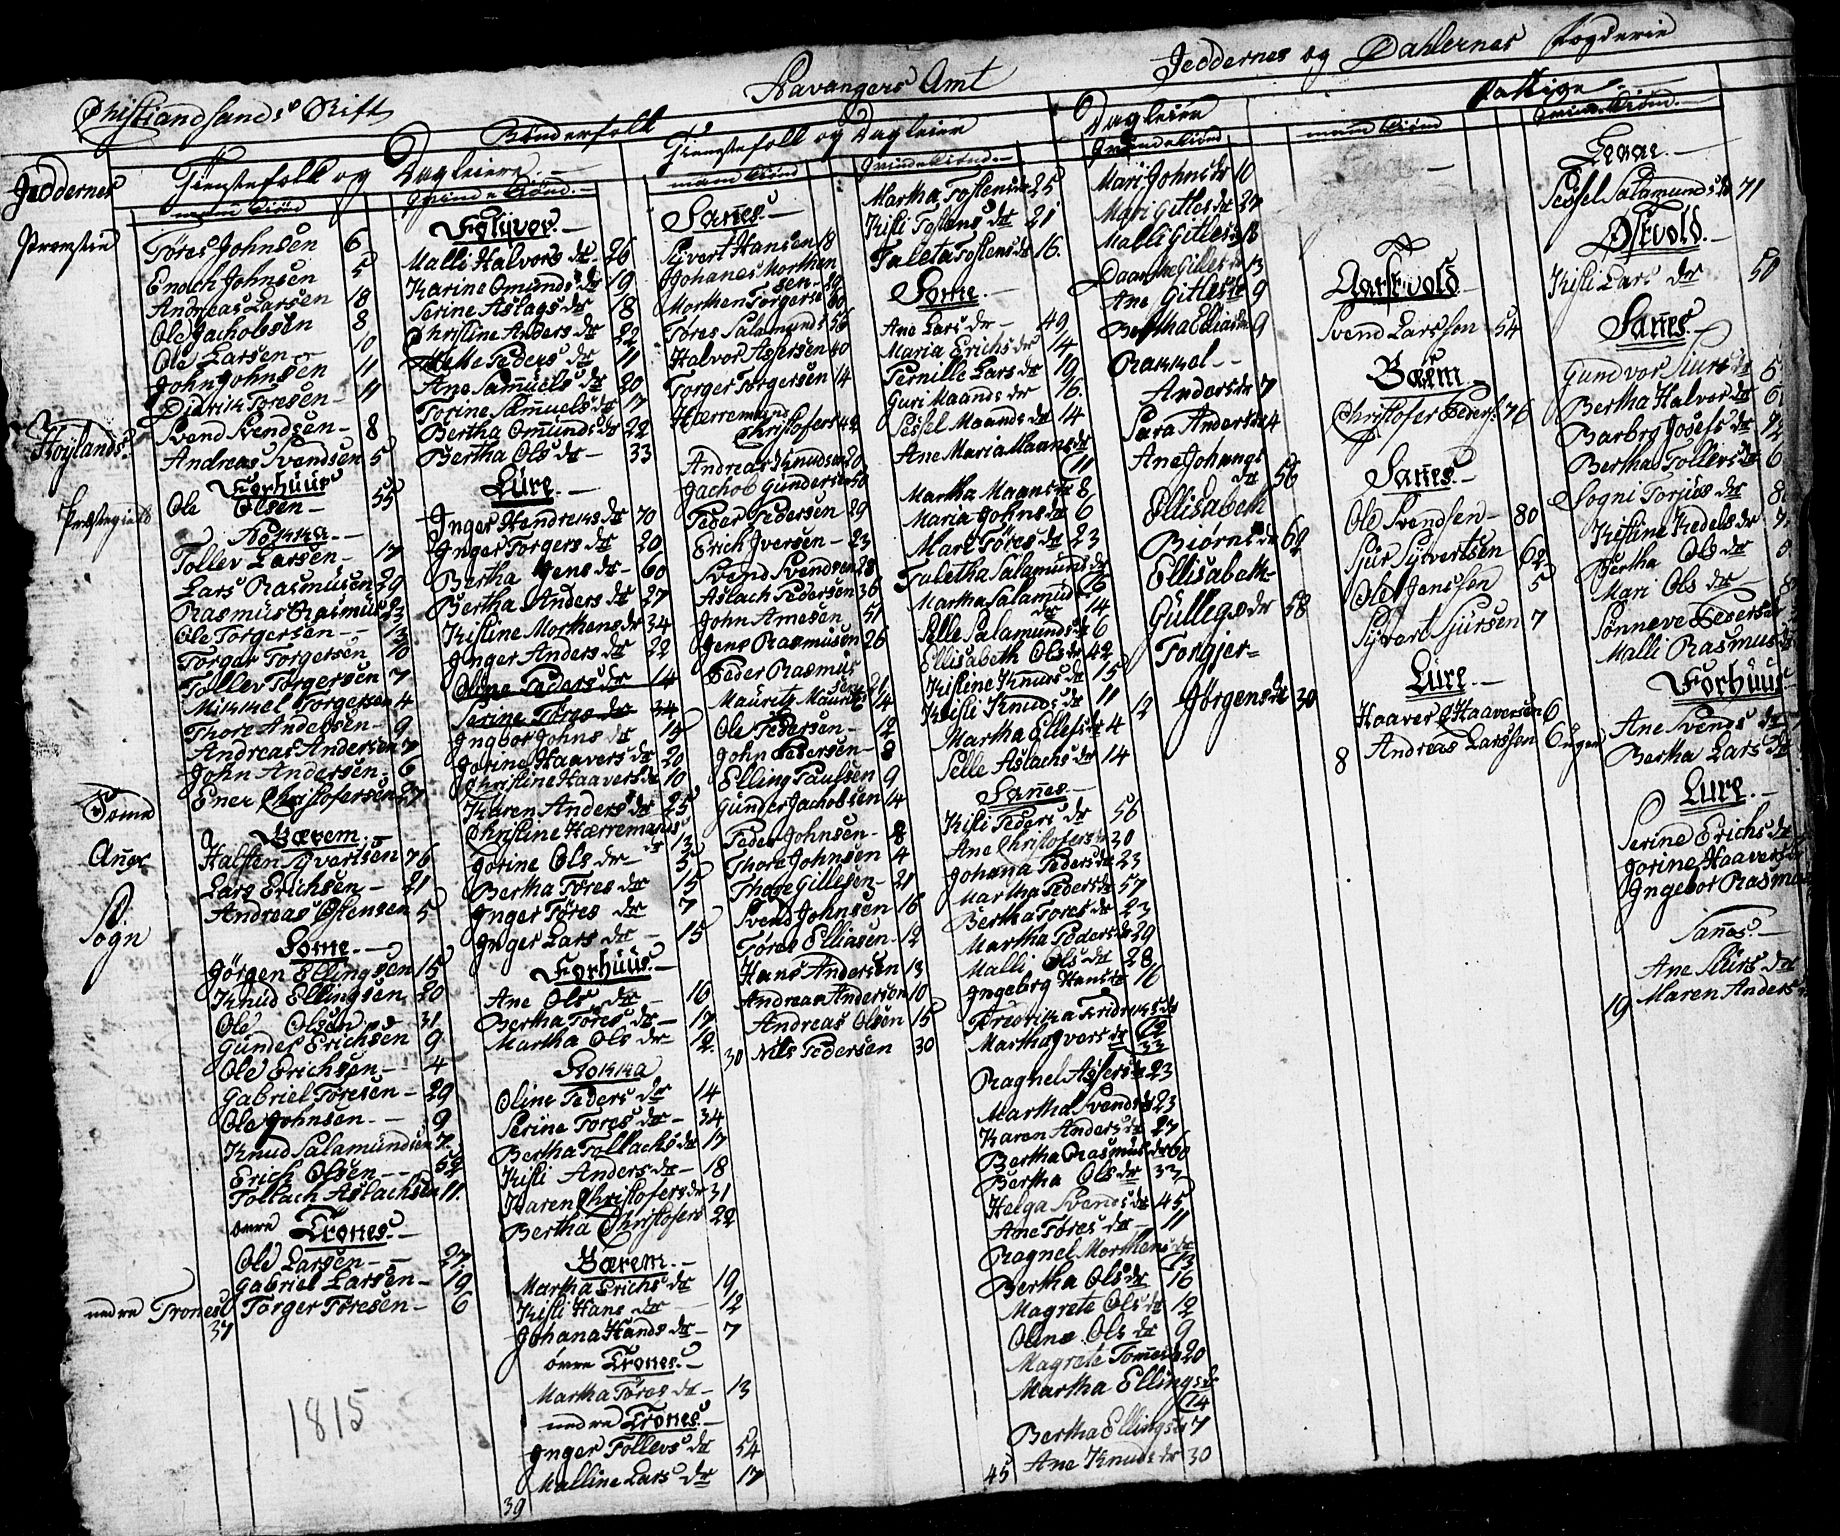 Christiansands Stift
Stavangers Amt
Jeddernes og Dahlernes Fogderie
Bonderfolk
Tienestefolk og Dagleiere
mand kiönd
Qvinde kiönd
Jeddernes
Prensten
Höylands
Præstegield
Some
Anex
Sogn
nedre Trones
Töres Johnsen 6
Enoch Johnsen 5
Andreas Larsen 18
Ole Jachobsen 8
Ole Larsen 10
John Johnsen 11
Didrik Toresen 11
Svend Svendsen 8
Andreas Svendsen 5
Forhuus
Ole Olsen 55
Stokka
Tollev Larsen 17
Lars Rasmusen 29
Rasmus Rasmus 23
Ole Torgersen 13
Torger Torgersen 10
Tollev Torgersen 7
Mikkel Torgersen 4
Thore Andersen 9
Andreas Andersen 7
John Andersen 6
Ener Christofersen 27
Bærem
Halsten Syvertsen 76
Lars Erichsen 21
Andreas Östensen 5
Some
Jörgen Ellingsen 15
Knud Ellingsen 20
Ole Olsen 31
Gunder Erichsen 9
Ole Erichsen 4
Gabriel Töresen 29
Ole Johnsen 9
Knud Salamundsen 7
Erich Olsen 52
Tollach Aslachsen 11
övre Trones
Ole Larsen 27
Gabriel Larsen 19
Torger Töresen 6
37
1815
Malli Halvors dr 26
Karine Omunds dr 19
Serine Aslags dr 18
Christine Anders dr 22
Mette Peders dr 11
Ane Samuels dr 20
Torine Samuels dr 17
Bertha Omunds dr 22
Bertha Ols dr 33
Lure
Inger Hendreks dr 70
Inger Torgers dr 20
Bertha Jens dr 60
Bertha Anders dr 27
Kistine Morthens dr 34
Inger Anders dr 22
Oline Peders dr 14
Serine Töres dr 34
Ingbor Johns dr 15
Jorine Haavers dr 20
Christine Haavers dr 10
Karen Anders dr 25
Christine Hærremands dr 13
Jorine Ols dr 5
Bertha Töres dr 15
Inger Töres dr 7
Inger Lars dr 15
Forhuus
Ane Ols dr 16
Bertha Töres dr 17
Martha Ols dr 12
Stokka
Oline Peders dr 14
Serine Tores dr 34
Bertha Tollachs dr 17
Kisti Anders dr 18
Karen Christofers dr 31
Bertha Christofers 22
Bærem
Martha Erichs dr 19
Kisti Hans dr 12
Johana Hands dr 7
övre Trones
Martha Töres dr 13
nedre Trones
Inger Tollevs dr 54
Malline Lars dr 17
39
Tienestefolk og Dagleiere
mand kiönd
Sanes
Syvert Hansen 18
Johanes Morthensen 29
Morthen Torgersen 60
Tores Salamunds 56
Halvor Assersen 40
Torger Torgersen 14
Hærremund Christofers 42
Andreas Knudsen 20
Jachob Gundersen 50
Peder Pedersen 29
Erich Iversen 23
Svend Svendsen 28
Aslach Pedersen 36
John Arnesen 51
Jens Rasmusen 26
Peder Rasmussen 21
Mauritz Mauritz 14
Ole Pedersen 12
John Pedersen 8
Elling Paulsen 9
Gunder Jachobsen 14
Peder Johnsen 8
Thore Johnsen 4
Thore Gillesen 21
Svend Johnsen 16
Tores Elliasen 12
Hans Andersen 13
Andreas Andersen 10
Andreas Olsen 15
Nils Pedersen 30
30
Qvinde kiönd
Martha Tostens dr 25
Kisti Tostens dr 21
Taleta Tostens dr 16
Some
Ane Lars dr 49
Maria Erichs dr 14
Pernille Lars dr 19
Guri Maands dr 16
Sessel Maands dr 14
Ane Maria Maans dr 11
Martha Maans dr 8
Maria Johns dr 6
Mari Töres dr 23
Taletha Salamunds dr 16
Martha Salamud dr 14
Pelle Salamunds dr 6
Ellisabeth Ols dr 42
Kistine Knuds dr 15
Kisti Knuds dr 11
Martha Ellefs dr 4
Pelle Aslachs dr 14
Sanes
Kisti Peders dr 56
Ane Christofers dr 30
Johana Peders dr 23
Martha Peders dr 57
Bertha Tores dr 23
Martha Peders dr 29
Malli Ols dr 28
Ingebrg Hans dr 16
Fredrika Fridreks dr 12
Martha Ivers dr 33
Ragnel Assers dr 23
Martha Svends dr 23
Karen Anders dr 27
Bertha Rasmus dr 60
Bertha Ols dr 33
Helga Svends dr 45
Ane Töres dr 11
Ragnel Morthens dr 13
Bertha Ols dr 16
Magrete Ols dr 12
Oline Ols dr 9
Magrete Tomes dr 20
Martha Ellings dr 14
Bertha Ellings dr 7
Ane Knuds dr 30
45
Dagleiere
Qvinde kiönd
Mari Johns dr 10
Mari Gitles dr 27
Malli Gitles dr 18
Daarthe Gilles dr 13
Ane Gitles dr 9
Bertha Ellias dr 9
Rakkel Anders dr 7
Sara Anders dr 4
Ane Johanes dr 56
Ellisabeth Biörns dr 62
Ellisabeth Gullegs dr 58
Torgier Jörgens dr 30
12
Fattige
mand kiönd
Aarsvold
Svend Larssen 54
Bærem
Christofer Peders 76
Sanes
Ole Svendsen 80
Sjur Syvertsen 62
Ole Jenssen 5
Syvert Sjursen 7
Lure
Haaver Haaversen 6
Andreas Larssen 6 uger
8
Qvinde kiönd
Sessel Salamunds dr 71
Östvold
Kisti Lars dr 50
Sanes
Gundvor Siurs dr 5
Bertha Halvors dr 6
Barbrg Josefs dr 72
Bertha Tollevs dr 6
Sogni Torjus dr 8
Kistine Kedels dr 7
Bertha Ols dr
Mari Ols dr 8
Sönneve Peders
Malli Rasmus dr
Forhuus
Ane Svends dr
Bertha Lars dr
Lure
Serine Erichs dr
Jorine Haavers dr
Ingebor Rasmu
Sanes
Ane Siurs dr
Maren Anders
19